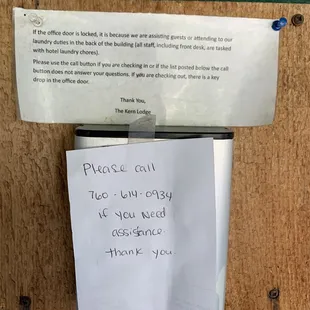 If the office door is locked, it is because we are assisting guests or attending to our
laundry duties in the back of the building (all staff, including front desk, are tasked
with hotel laundry chores).
Please use the call button if you are checking in or if the list posted below the call
button does not answer your questions. If you are checking out, there is a key
drop in the office door.
Thank You,
The Kern Lodge
Please call
760-614-0934
if you need
assistance.
thank you